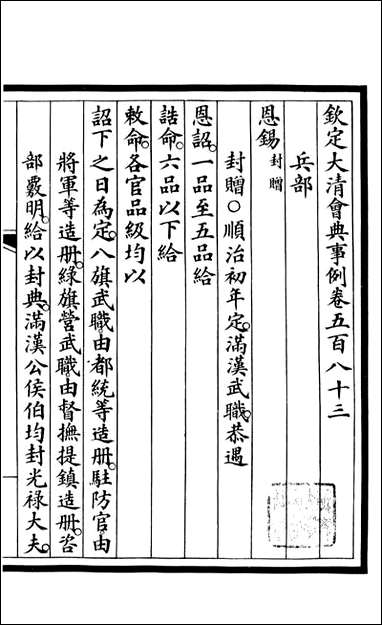 欽定大清會典事例卷五百八十三
兵部
恩錫封贈
封贈○順治初年定。滿漢武職。恭遇
恩詔。一品至五品給
誥命。六品以下給
敕命。各官品級均以
詔下之日為定。八旗武職。由都統等造册。駐防官由
將軍等造册。綠旗營武職。由督撫提鎮造册。咨
部覈明。給以封典。滿漢公侯伯均封光祿大夫。